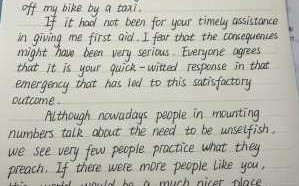 off my bike by a taxi.
If it had not been for your timely assistance
in giving me first aid. I fear that the consequences
might have been very serious. Everyone agrees
that it is your quick-witted response in that
emergency that has led to this satisfactory
outcome.
Although nowadays people in mounting
numbers talk about the need to be unselfish,
we see very few people practice what they
preach. If there were more people like you,
this world would be a much nicer place